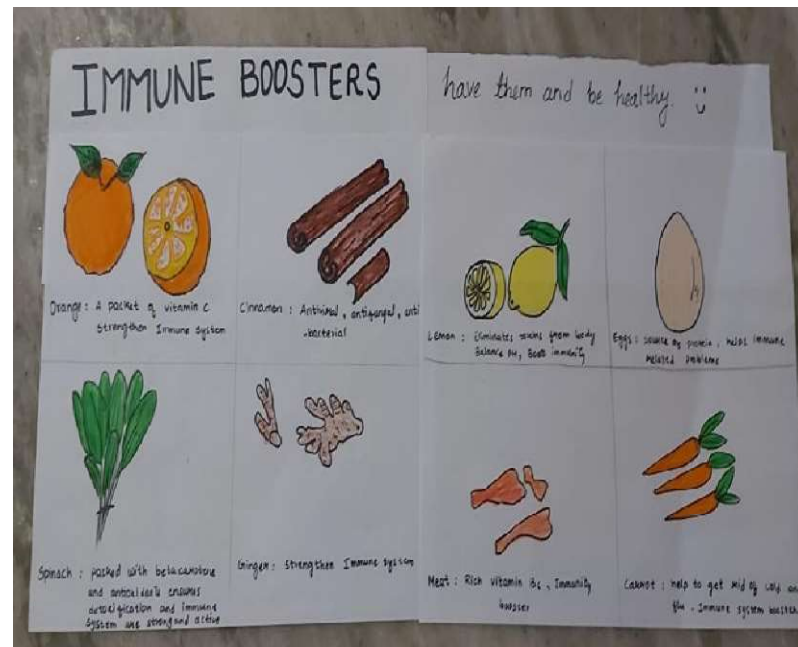 IMMUNE BOOSTERS
have them and be healthy. :)
Orange : A packet of vitamin C
Strengthen Immune System
Cinnamon : Antiviral, antifungal, anti
-bacterial
Lemon : Eliminates toxins from body
Balance PH, Boost immunity
Eggs : source of protein, helps immune
related problems
Spinach : packed with betacarotene
and antioxidants ensures
detoxification and immune
system are strong and active
Ginger : Strengthen Immune System
Meat : Rich vitamin B6, Immunity
booster
Carrot : help to get rid of cold and
flu. Immune system booster